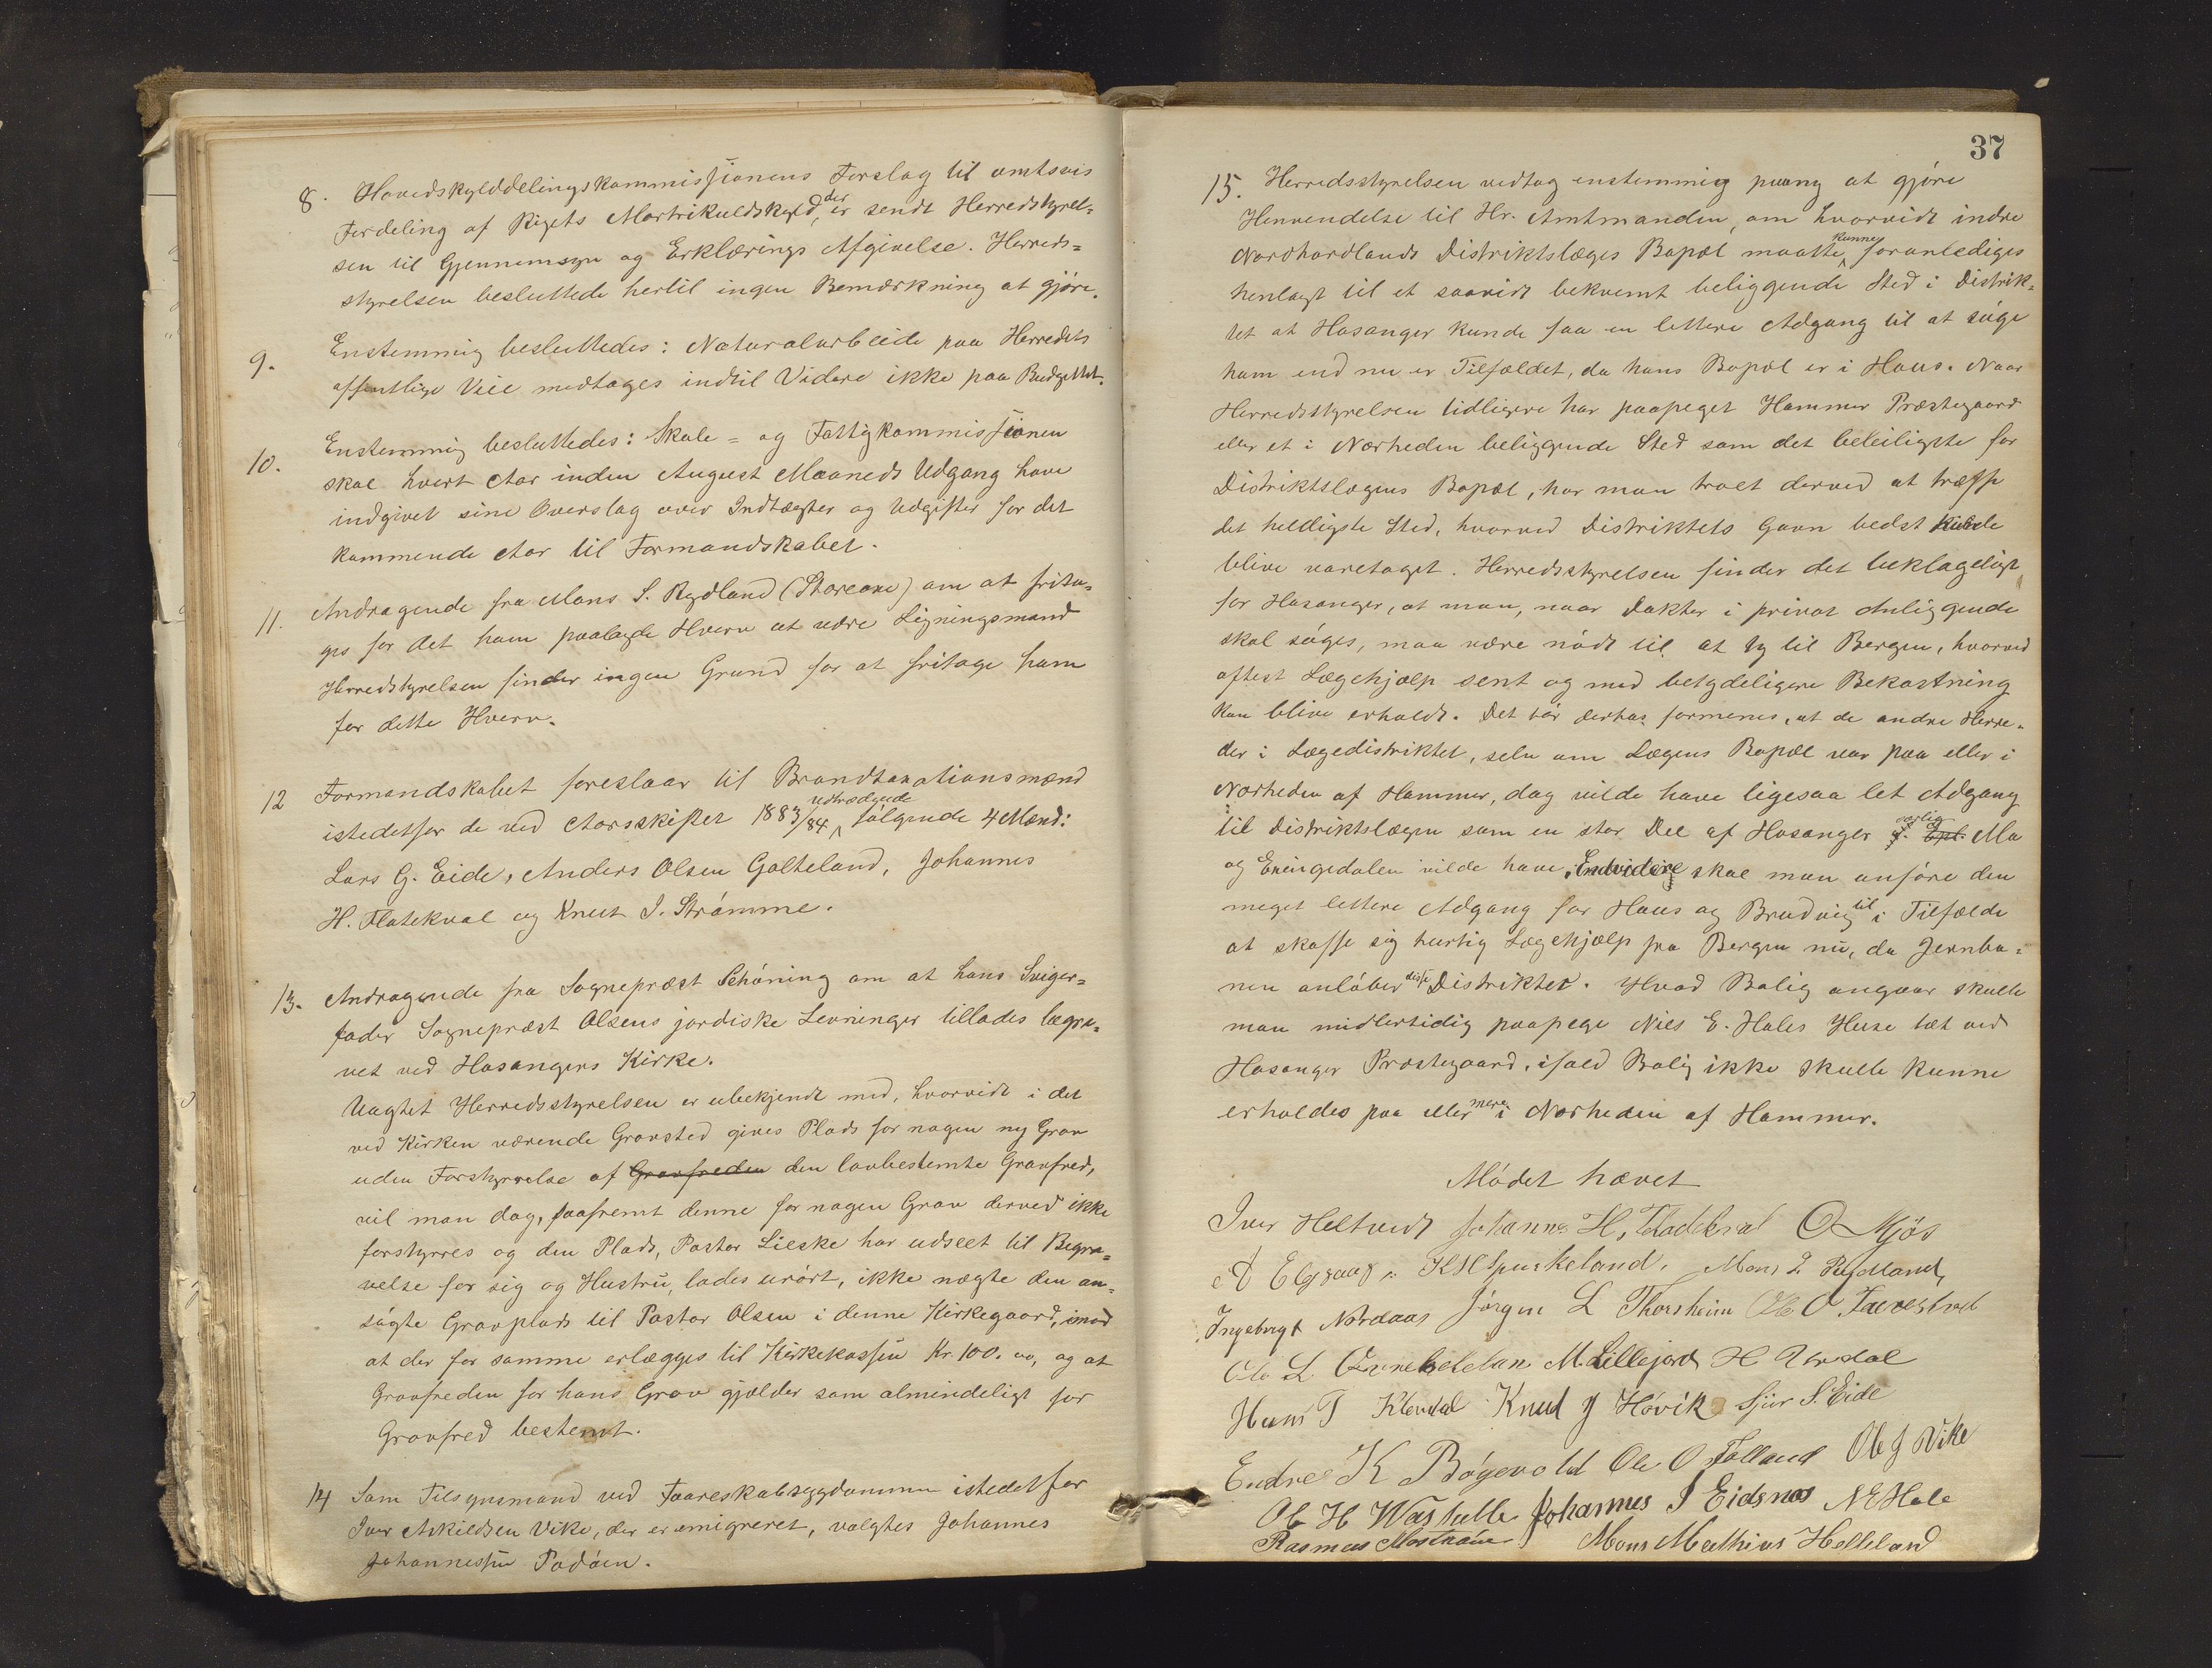 8. Hovedskylddelingskommissionens Forslag til amtsvis
Fordeling af Rigets Martrikulskyld, der er sendt Herredstyrel=
sen til Gjennemsyn og Erklærings Afgivelse. Herreds=
styrelsen besluttede hertil ingen Bemærkning at gjøre.
9. Enstemmig besluttedes: Naturalarbeide paa Herredets
offentlige Veie medtages indtil Videre ikke paa Budgettet.
10. Enstemmig besluttedes: Skole= og Fattigkommissionen
skal hvert Aar inden August Maaneds Udgang have
indgivet sine Overslag over Indtægter og Udgifter for det
kommende Aar til Formandskabet.
11. Andragende fra Mons S. Rydland (Storeone) om at frita=
ges for det ham paalagde Hverv at være Ligningsmand
Herredstyrelsen finder ingen Grund for at fritage ham
for dette Hverv.
12 Formandskabet foreslaar til Brandtaxationsmænd
istedetfor de ved Aarsskiftet 1883/84 udtrædende følgende 4 Mænd:
Lars G. Eide, Anders Olsen Galteland, Johannes
H. Flatekval og Knut J. Strømme.
13. Andragende fra Sognepræst Schøning om at hans Sviger=
fader Sognepræst Olsens jordiske Levninger tillades begra=
vet ved Hosangers Kirke.
Uagtet Herredsstyrelsen er ubekjendt med, hvorvidt i det
ved Kirken værende Gravsted gives Plads for nogen ny Grav
uden Forstyrrelse af Gravfreden den lovbestemte Gravfred,
vil man dog, saafremt denne for nogen Grav derved ikke
forstyrres og den Plads, Pastor Lieske har udseet til Begra=
velse for sig og Hustru, lades urørt, ikke nægte den an=
søgte Gravplads til Pastor Olsen i denne Kirkegaard, imod
at der for samme erlægges til Kirkekassen Kr. 100. 00, og at
Gravfreden for hans Grav gjælder som almindeligt for
Gravfred bestemt.
14 Som Tilsynsmand ved Faareskabsygdommen istedetfor
Iver Askildsen Vike, der er emigreret, valgtes Johannes
Johannessen Padøen.
37
15. Herredsstyrelsen vedtog enstemmig paany at gjøre
Henvendelse til Hr. Amtmanden, om hvorvidt indre
Nordhordlands Distriktslæges Bopæl maatte kunne foranlediges
henlagt til et saavidt bekvemt beliggende Sted i Distrik=
tet at Hosanger kunde faa en lettere Adgang til at søge
ham end nu er Tilfældet, da hans Bopæl er i Haus. Naar
Herredsstyrelsen tidligere har paapeget Hammer Præstegaard
eller et i Nærheden beliggende Sted som det beleiligste for
Distriktslægens Bopæl, har man troet derved at træffe
det heldigste Sted, hvorved Distriktets Gavn bedst kunde
blive varetaget. Herredsstyrelsen finder det beklageligt
for Hosanger, at man, naar Doktor i privat Anliggende
skal søges, maa være nødt til at ty til Bergen, hvorved
oftest Lægehjælp sent og med betydeligere Bekostning
kan blive erholdt. Det bør derhos formenes, at de andre Herre=
der i Lægedistriktet, selv om Lægens Bopæl var paa eller i
Nærheden af Hammer, dog vilde have ligesaa let Adgang
til Distriktslægen som en stor Del af Hosanger Mo
og Exingedalen vilde have. Endvidere skal man anføre den
meget lettere Adgang for Haus og Brudvig til i Tilfælde
at skaffe sig hurtig Lægehjælp fra Bergen nu, da Jernba=
nen anløber disse Distrikter. Hvad Bolig angaar skulle
man midlertidig paapege Nils E. Hales Huse tæt ved
Hosanger Præstegaard, ifald Bolig ikke skulle kunne
erholdes paa eller mere i Nærheden af Hammer.
Mødet hævet
Iver Heltvedt Johannes H. Fladekval O Mjøs
A Elsaas K H Spurkeland, Mons S Rydland,
Ingebregt Nordaas Jørgen L Thorsheim Ole O Farestvet
Ole L M. Lillejord H Urdal
Hans T Knud J Høvik Sjur S. Eide
Endre K Bøgevold Ole O Falland Ole J Vike
Ole H Johannes J Eidsnes N E Hale
Rasmus Mostrøm Mons Mathias Helleland